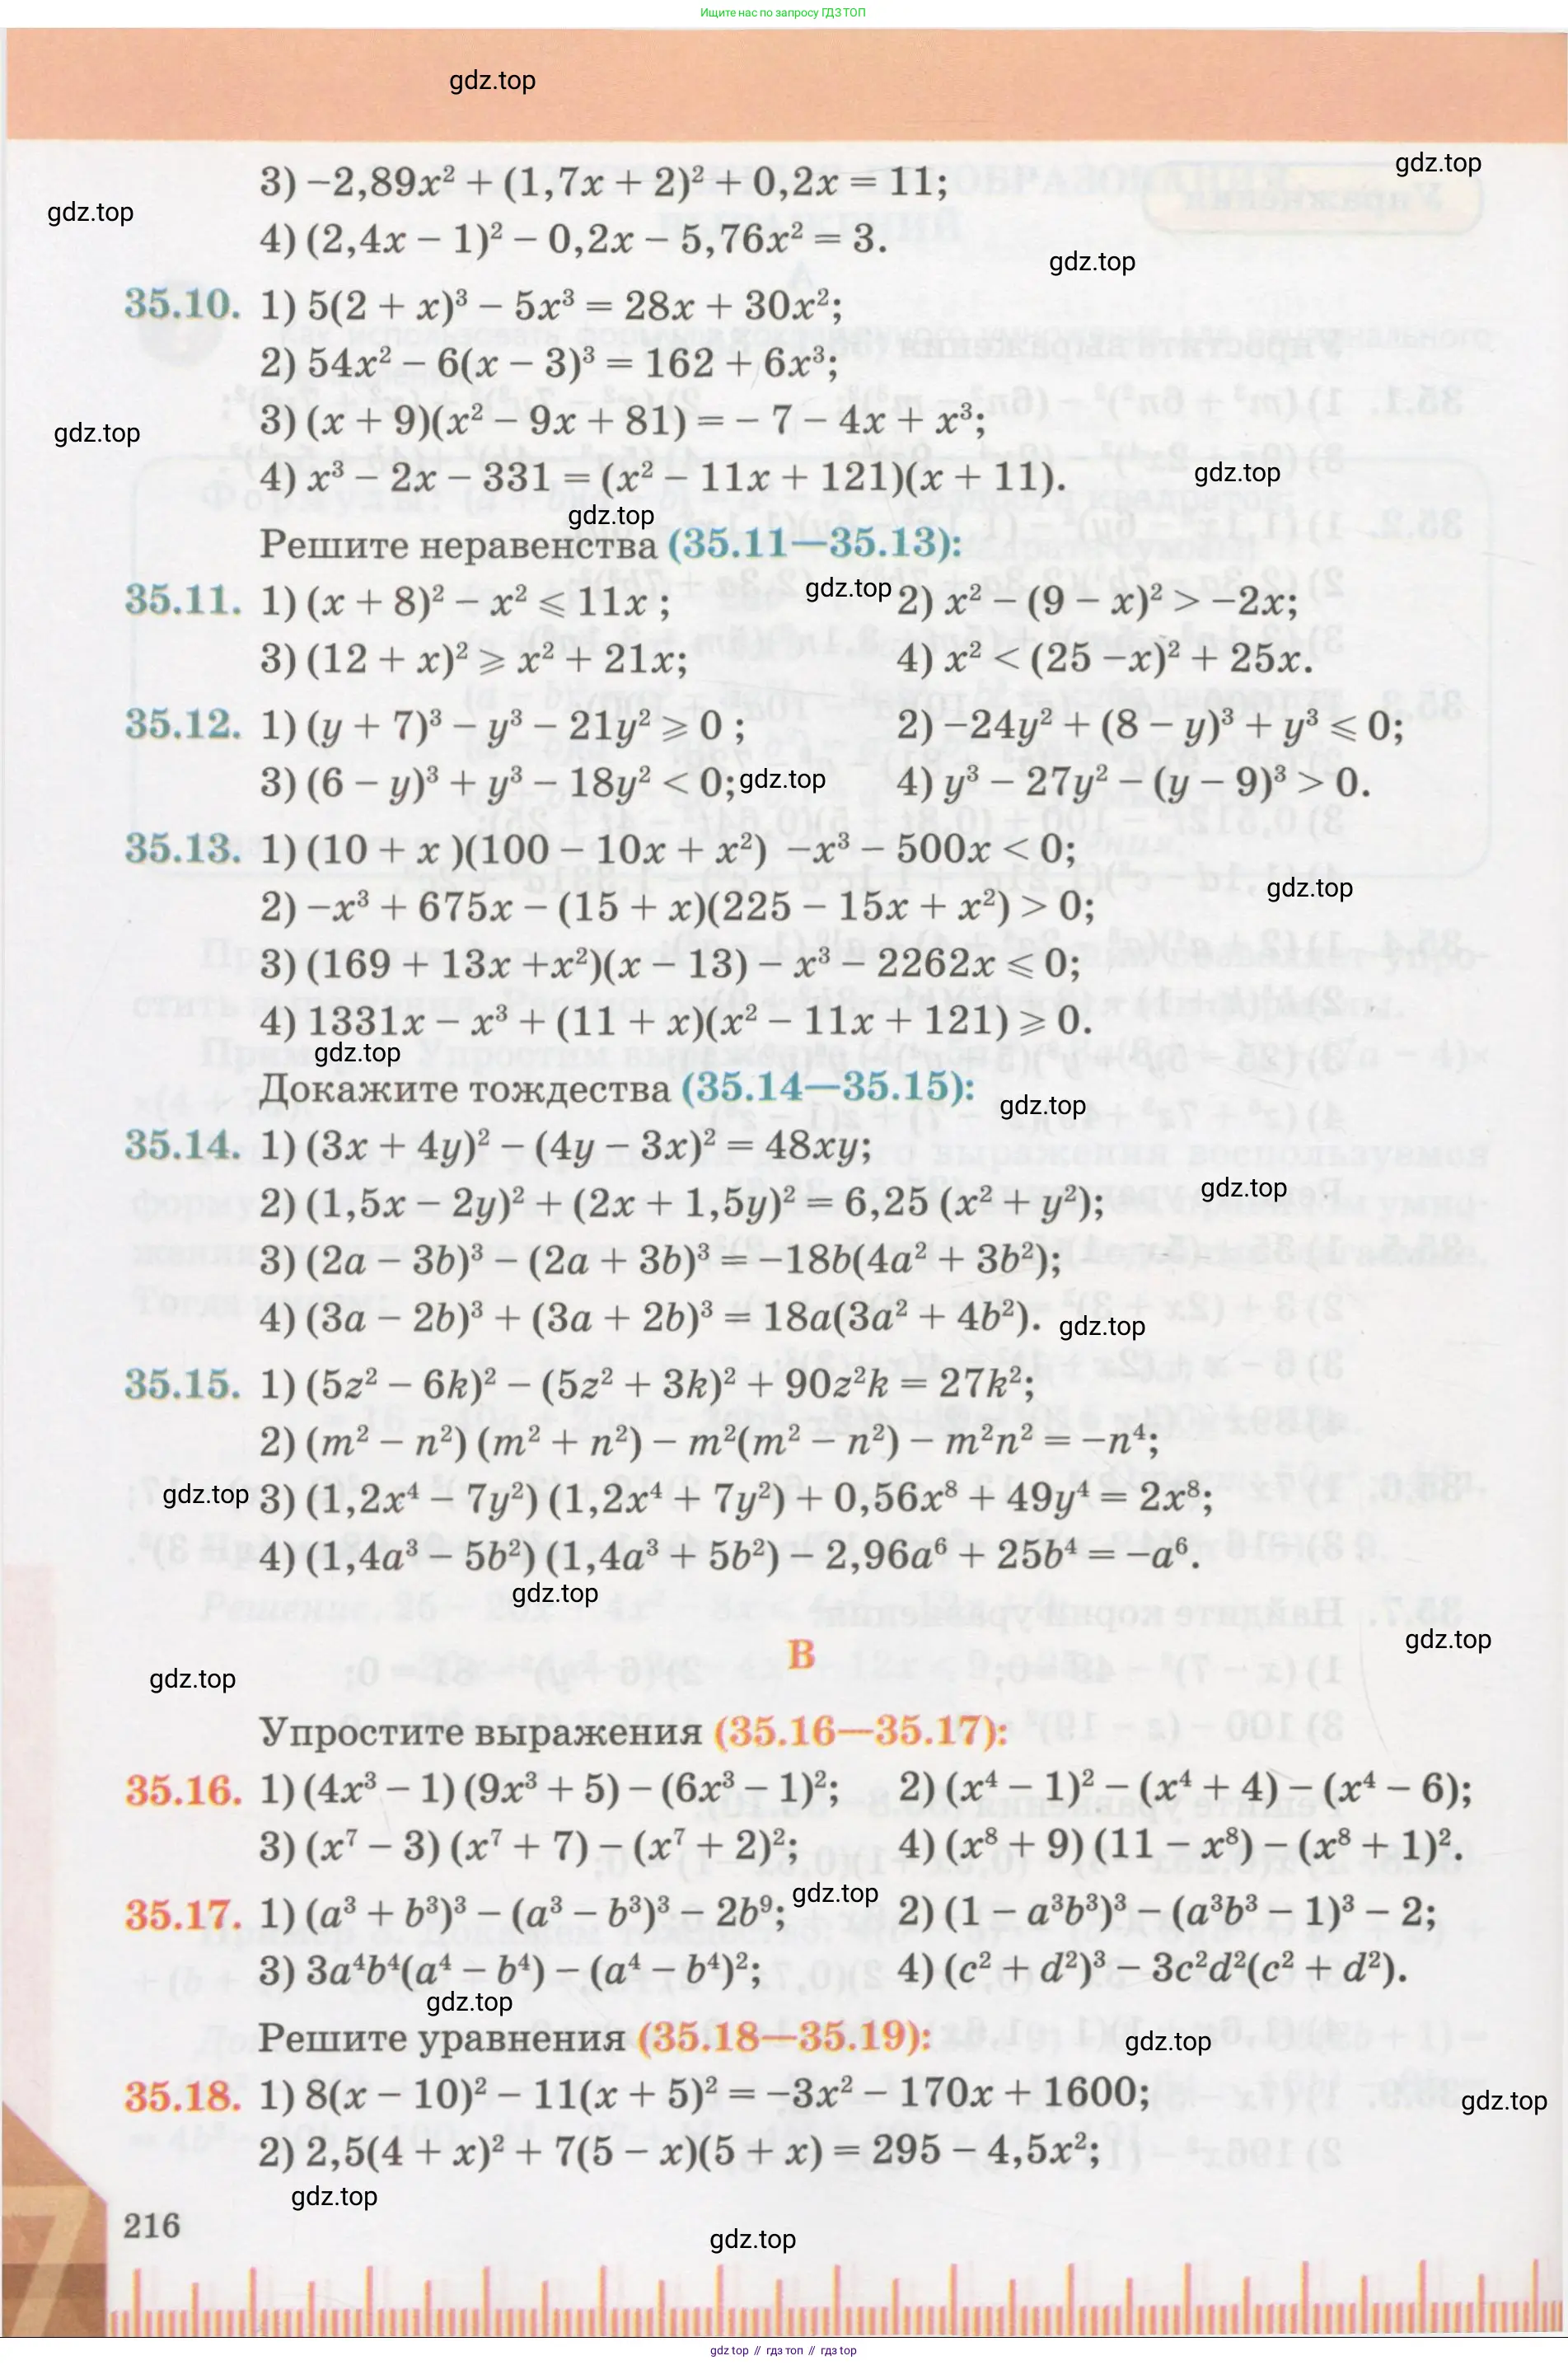 Ищите нас по запросу ГДЗ ТОП
gdz.top
gdz.top
3) –2,89x² + (1,7x + 2)² + 0,2x = 11;
gdz.top
4) (2,4x – 1)² – 0,2x – 5,76x² = 3.
gdz.top
35.10. 1) 5(2 + x)³ – 5x³ = 28x + 30x²;
2) 54x² – 6(x – 3)³ = 162 + 6x³;
3) (x + 9)(x² – 9x + 81) = – 7 – 4x + x³;
gdz.top
4) x³ – 2x – 331 = (x² – 11x + 121)(x + 11).
gdz.top
gdz.top
Решите неравенства (35.11—35.13):
35.11. 1) (x + 8)² – x² ⩽ 11x ; gdz.top 2) x² – (9 – x)² > –2x;
3) (12 + x)² ⩾ x² + 21x; 4) x² < (25 –x)² + 25x.
35.12. 1) (y + 7)³ – y³ – 21y² ⩾ 0 ; 2) –24y² + (8 – y)³ + y³ ⩽ 0;
3) (6 – y)³ + y³ – 18y² < 0; gdz.top 4) y³ – 27y² – (y – 9)³ > 0.
35.13. 1) (10 + x )(100 – 10x + x²) –x³ – 500x < 0;
gdz.top
2) –x³ + 675x – (15 + x)(225 – 15x + x²) > 0;
3) (169 + 13x +x²)(x – 13) – x³ – 2262x ⩽ 0;
4) 1331x – x³ + (11 + x)(x² – 11x + 121) ⩾ 0.
gdz.top
Докажите тождества (35.14—35.15):
gdz.top
35.14. 1) (3x + 4y)² – (4y – 3x)² = 48xy;
gdz.top
2) (1,5x – 2y)² + (2x + 1,5y)² = 6,25 (x² + y²);
3) (2a – 3b)³ – (2a + 3b)³ = –18b(4a² + 3b²);
4) (3a – 2b)³ + (3a + 2b)³ = 18a(3a² + 4b²).
gdz.top
35.15. 1) (5z² – 6k)² – (5z² + 3k)² + 90z²k = 27k²;
2) (m² – n²) (m² + n²) – m²(m² – n²) – m²n² = –n⁴;
gdz.top 3) (1,2x⁴ – 7y²) (1,2x⁴ + 7y²) + 0,56x⁸ + 49y⁴ = 2x⁸;
4) (1,4a³ – 5b²) (1,4a³ + 5b²) – 2,96a⁶ + 25b⁴ = –a⁶.
gdz.top
gdz.top
B
gdz.top
Упростите выражения (35.16—35.17):
35.16. 1) (4x³ – 1) (9x³ + 5) – (6x³ – 1)²; 2) (x⁴ – 1)² – (x⁴ + 4) – (x⁴ – 6);
3) (x⁷ – 3) (x⁷ + 7) – (x⁷ + 2)²; 4) (x⁸ + 9) (11 – x⁸) – (x⁸ + 1)².
gdz.top
35.17. 1) (a³ + b³)³ – (a³ – b³)³ – 2b⁹; 2) (1 – a³b³)³ – (a³b³ – 1)³ – 2;
3) 3a⁴b⁴(a⁴ – b⁴) – (a⁴ – b⁴)²; 4) (c² + d²)³ – 3c²d²(c² + d²).
gdz.top
Решите уравнения (35.18—35.19):
gdz.top
35.18. 1) 8(x – 10)² – 11(x + 5)² = –3x² – 170x + 1600;
gdz.top
2) 2,5(4 + x)² + 7(5 – x)(5 + x) = 295 – 4,5x²;
gdz.top
216
gdz.top
7
gdz top // гдз топ // гдз top